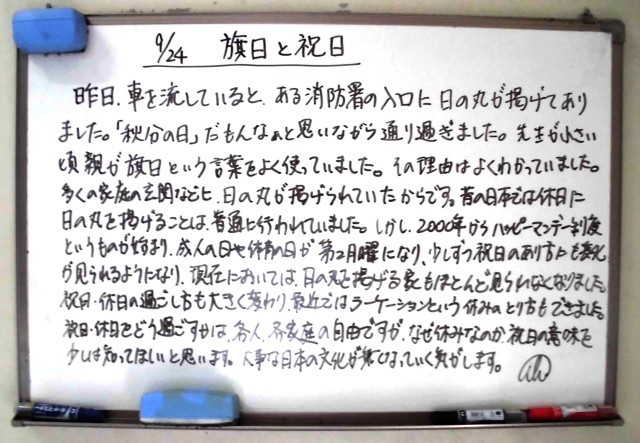 9/24 旗日と祝日
昨日、車を流していると、ある消防署の入口に日の丸が掲げてあり
ました。「秋分の日」だもんなぁと思いながら通り過ぎました。先生が小さい
頃親が旗日という言葉をよく使っていました。その理由はよくわかっていました。
多くの家庭の玄関などに、日の丸が掲げられていたからです。昔の日本では休日に
日の丸を掲げることは、普通に行われていました。しかし、2000年からハッピーマンデー制度
というものが始まり、成人の日や体育の日が第2月曜になり、少しずつ祝日のあり方にも変化
が見られるようになり、現在においては、日の丸を掲げる家もほとんど見られなくなりました。
祝日・休日の過ごし方も大きく変わり、最近ではラーケーションという休みのとり方もできました。
祝日・休日をどう過ごすかは、各人、各家庭の自由ですが、なぜ休みなのか、祝日の意味を
少しは知ってほしいと思います。大事な日本の文化が無くなっていく気がします。